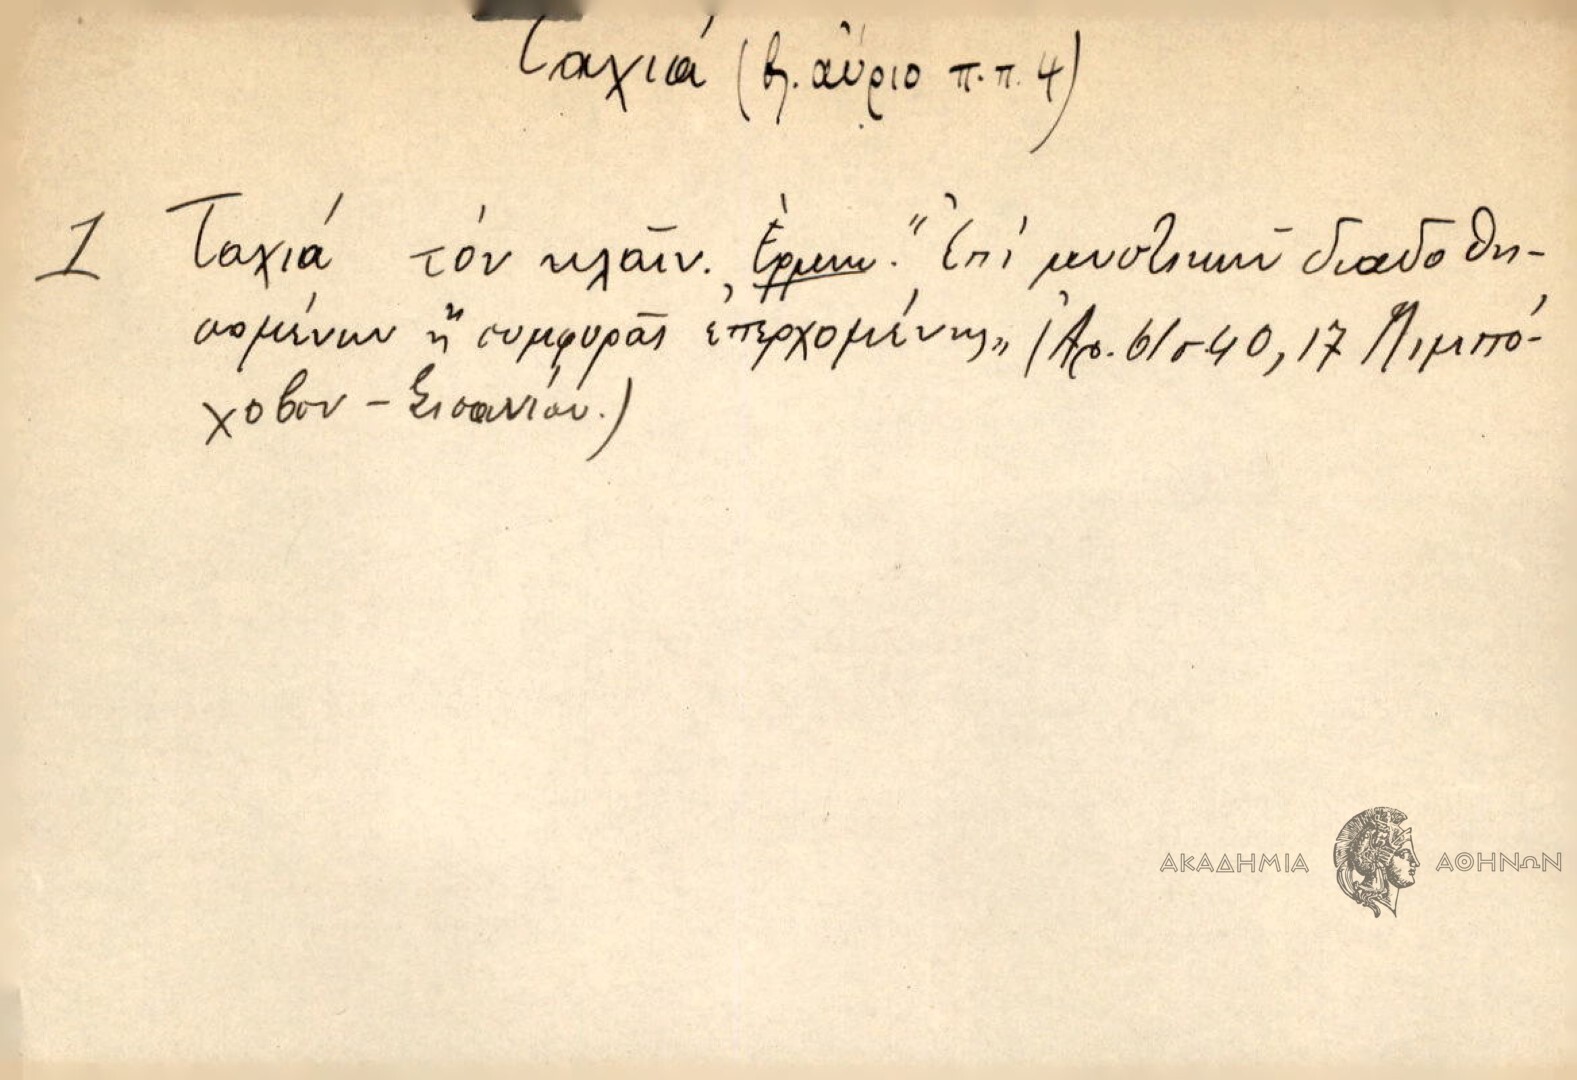 Ταχιά (βλ. αὔριο π.π. 4)
1 Ταχιά τόν κλαῖν. Ἑρμην. "Ἐπί μυστικῶν διαδοθη-
σομένων ἤ συμφορᾶς ἐπερχομένης„ (Ἀρ. 61 σ. 40, 17
χοβον - Σισανίου.)
ΑΚΑΔΗΜΙΑ ΑΘΗΝΩΝ